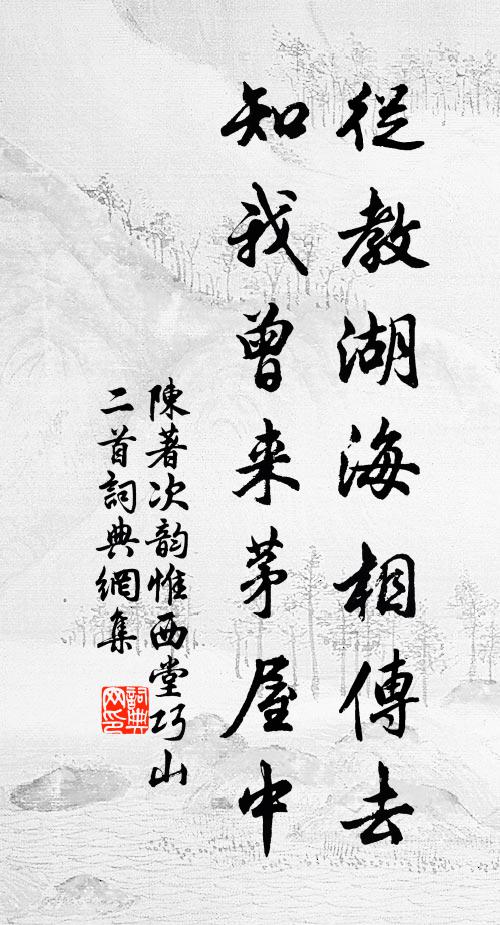 從教湖海相傳去
知我曾来茅屋中
陳著次韵惟西堂巧山
二首詞典網集
詞典网印